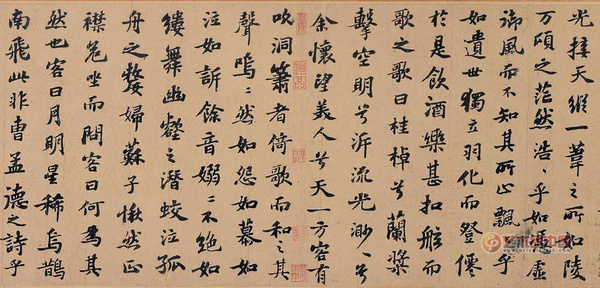 光接天縱一葦之所如陵
万頃之茫然浩〻乎如馮虛
御風而不知其所止飄〻乎
如遺世獨立羽化而登僊
於是飲酒樂甚扣舷而
歌之歌曰桂棹兮蘭槳
擊空明兮泝流光渺〻兮
余懷望美人兮天一方客有
吹洞簫者倚歌而和之其
聲嗚〻然如怨如慕如
泣如訴餘音嫋〻不絕如
縷舞幽壑之潛蛟泣孤
舟之嫠婦蘇子愀然正
襟危坐而問客曰何為其
然也客曰月明星稀烏鵲
南飛此非曹孟德之詩乎